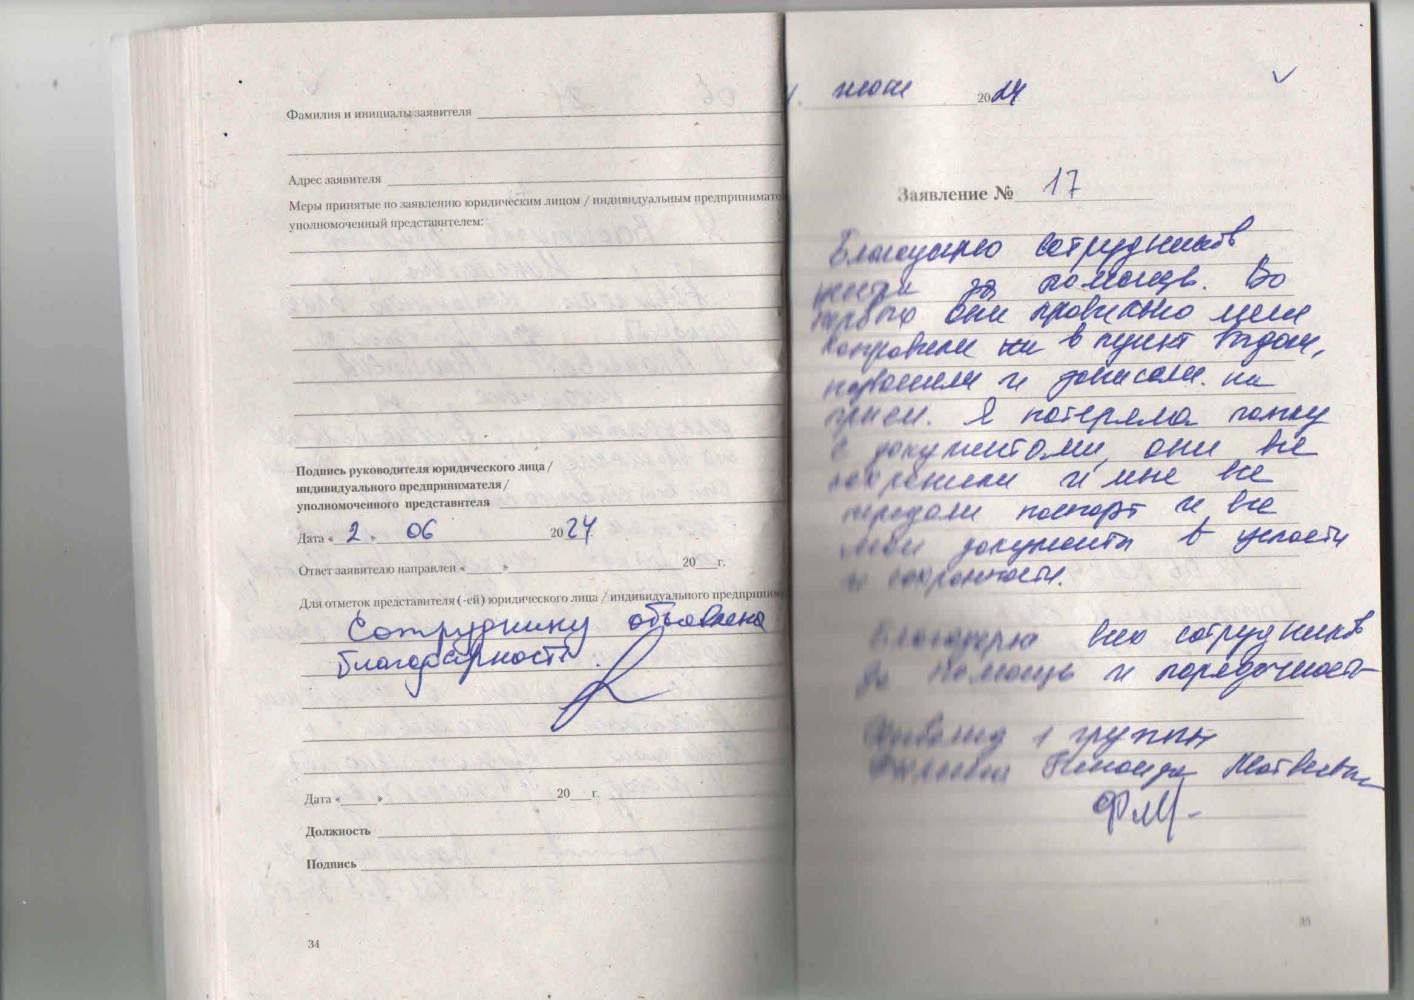 Фамилия и инициалы заявителя
Адрес заявителя
Меры принятые по заявлению юридическим лицом / индивидуальным предпринимате
уполномоченный представителем:
Подпись руководителя юридического лица /
индивидуального предпринимателя /
уполномоченного представителя
Дата « 2. 06 2024
Ответ заявителю направлен « » 20 г.
Для отметок представителя (-ей) юридического лица / индивидуального предприним
Сотруднику объявлена
благодарность.
Дата « » 20 г.
Должность
Подпись
34
июня 2024
Заявление № 17
Благодарю сотрудников
за помощь. Во
первых они правильно меня
направили в пункт выдачи,
позвонили и записали на
прием. Я потеряла папку
с документами, они все
сохранили и мне все
передали паспорт и все
мои документы в целости
и сохранности.
Благодарю всех сотрудников
за помощь и порядочность
Инвалид 1 группы
Матвеевна
35